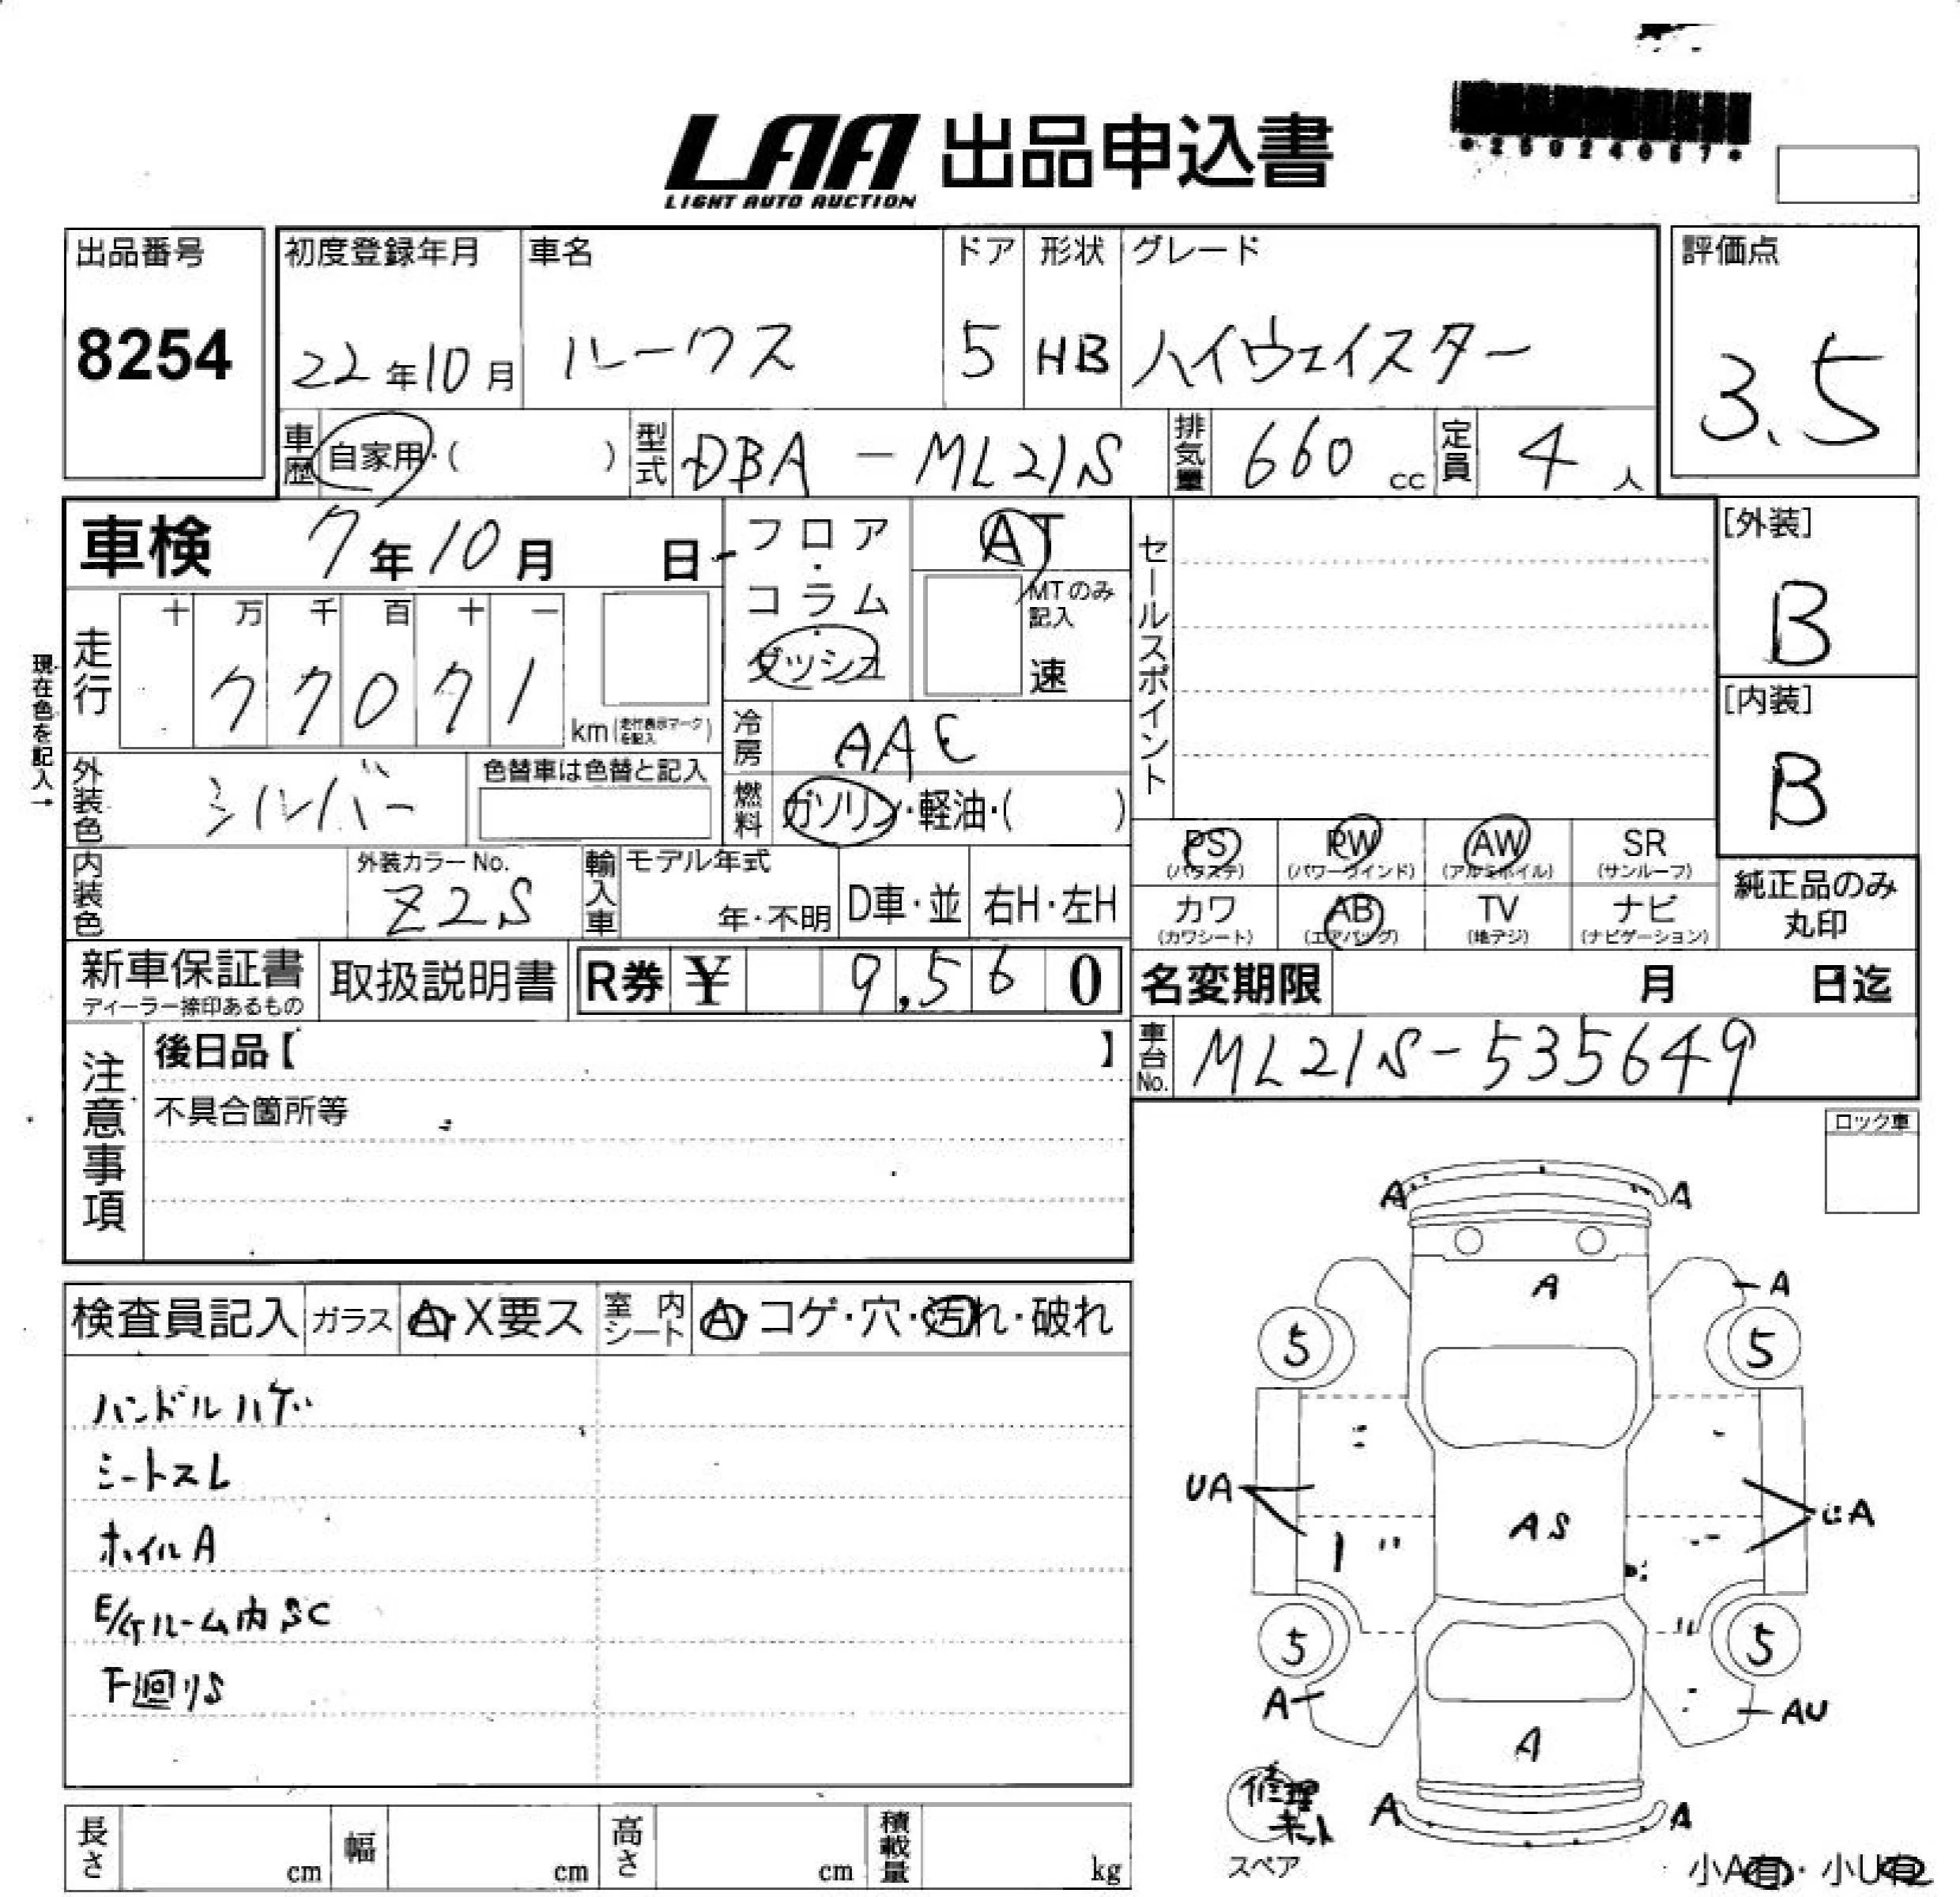 LAA 出品申込書
LIGHT AUTO AUCTION
*25024067*
出品番号
8254
初度登録年月
22年10月
車名
ルークス
ドア
5
形状
HB
グレード
ハイウェイスター
評価点
3.5
車歴 自家用・( )
型式 DBA-ML21S
排気量 660 cc
定員 4 人
車検 7年10月 日
フロア・コラム・ダッシュ
AT
MTのみ記入
速
セールスポイント
[外装]
B
[内装]
B
現在色を記入→
走行
十 万 千 百 十 一
7 7 0 7 1
km(走行表示マークを記入)
冷房 AAC
燃料 ガソリン・軽油・( )
外装色 シルバー
色替車は色替と記入
内装色
外装カラーNo.
Z2S
輸入車
モデル年式
年・不明
D車・並
右H・左H
PS (パワステ)
PW (パワーウインド)
AW (アルミホイル)
SR (サンルーフ)
カワ (カワシート)
AB (エアバッグ)
TV (地デジ)
ナビ (ナビゲーション)
純正品のみ
丸印
新車保証書
ディーラー捺印あるもの
取扱説明書
R券 ¥ 9,560
名変期限 月 日迄
車台No. ML21S-535649
注意事項
後日品【 】
不具合箇所等
ロック車
検査員記入
ガラス A・X要ス
室内シート A・コゲ・穴・汚れ・破れ
ハンドルハゲ
シートスレ
ホイルA
E/gルーム内SC
下廻りS
A A
A A
5 5
UA UA
AS
5 5
A AU
A
A A
修理キット
スペア
小A有・小U有
長さ cm
幅 cm
高さ cm
積載量 kg